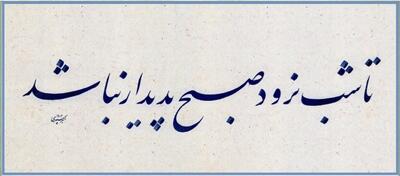 تا شب نرود صبح پدیدار نباشد